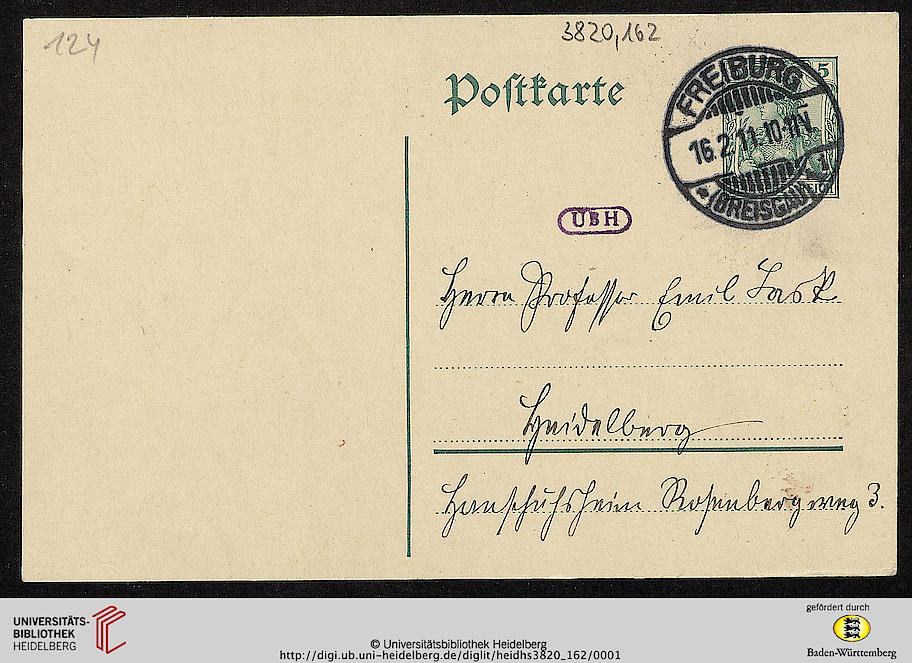 124
3820,162
Postkarte
5
FREIBURG
16.2.11.10-11N.
* (BREISGAU) * 1
REICH
UBH
Herrn Professor Emil Lask
Heidelberg
Hanschuhsheim Rosenbergweg 3.
UNIVERSITÄTS-
BIBLIOTHEK
HEIDELBERG
© Universitätsbibliothek Heidelberg
http://digi.ub.uni-heidelberg.de/diglit/heidhs3820_162/0001
gefördert durch
Baden-Württemberg